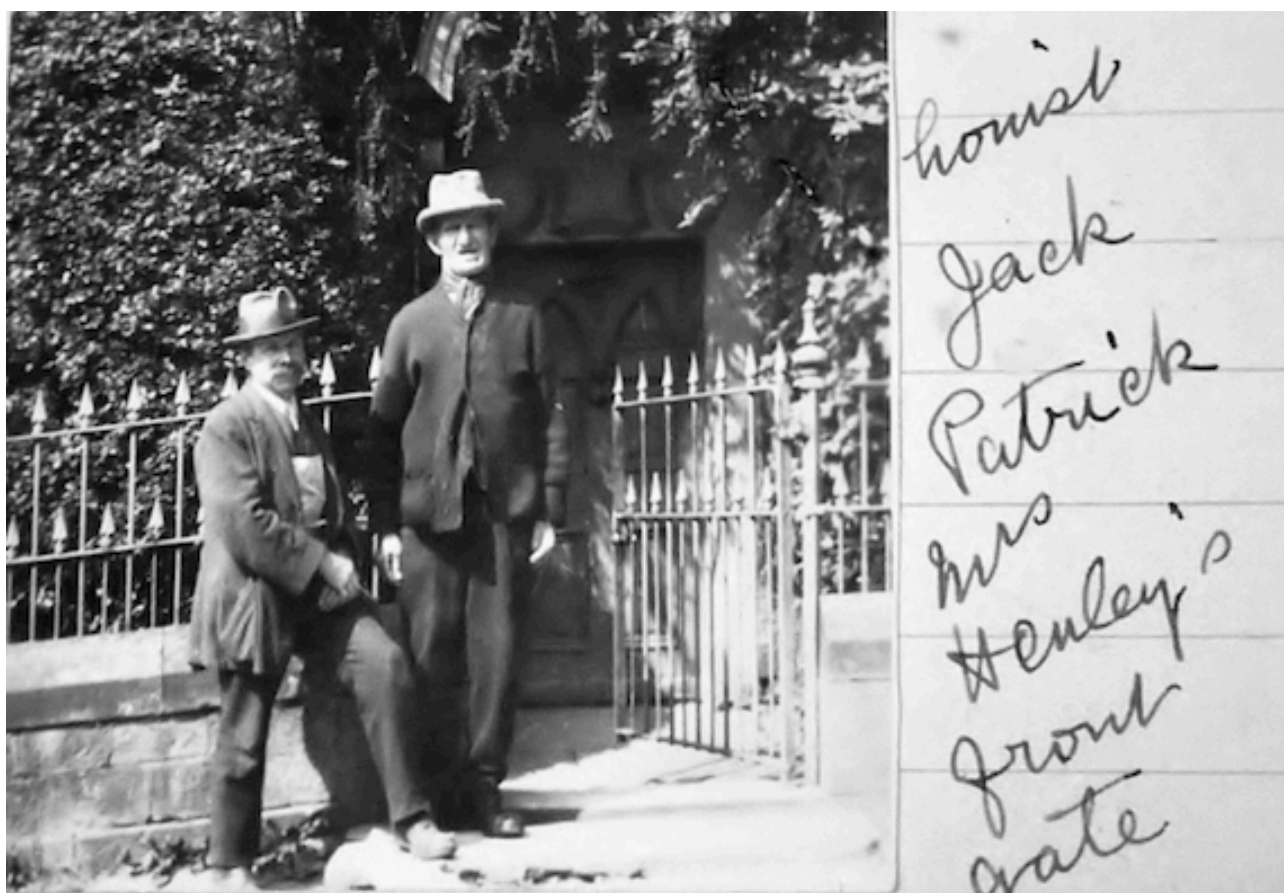 honist
Jack
Patrick
Mrs
Henley's
front
gate